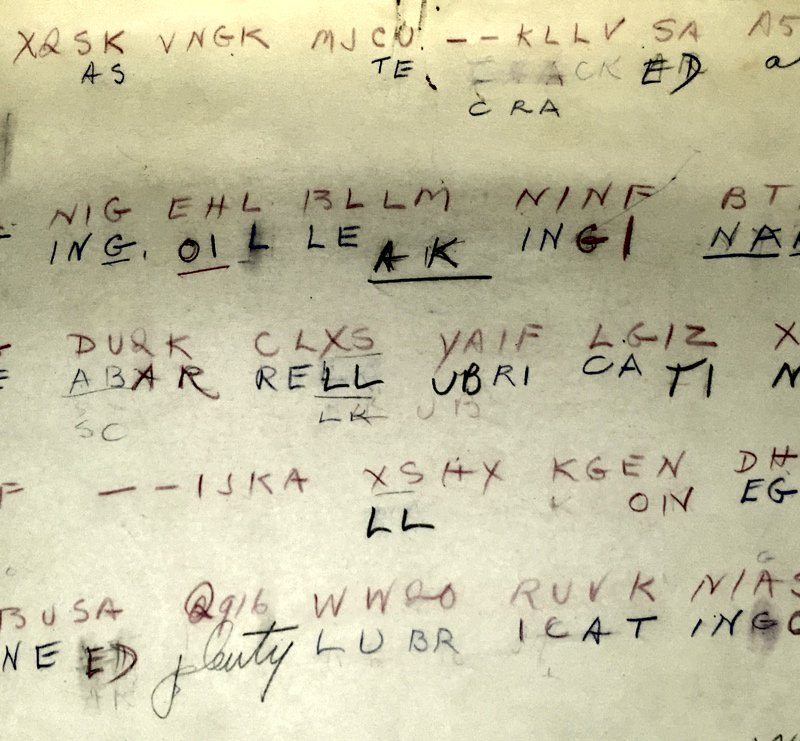 XQSK VNGK MJCU -- KLLV SA
AS TE ACK ED a
CRA
NIG EHL BLLM NINF BT
ING. OIL LEAK INGI NA
DUQK CLXS YAIF LGIZ X
E ABAR RELL UBRI CATI N
SC LK UB
F --IJKA XSHX KGEN DH
LL K OIN EG
BUSA WWQO RUVK NIAS
NEED plenty LUBR ICAT ING